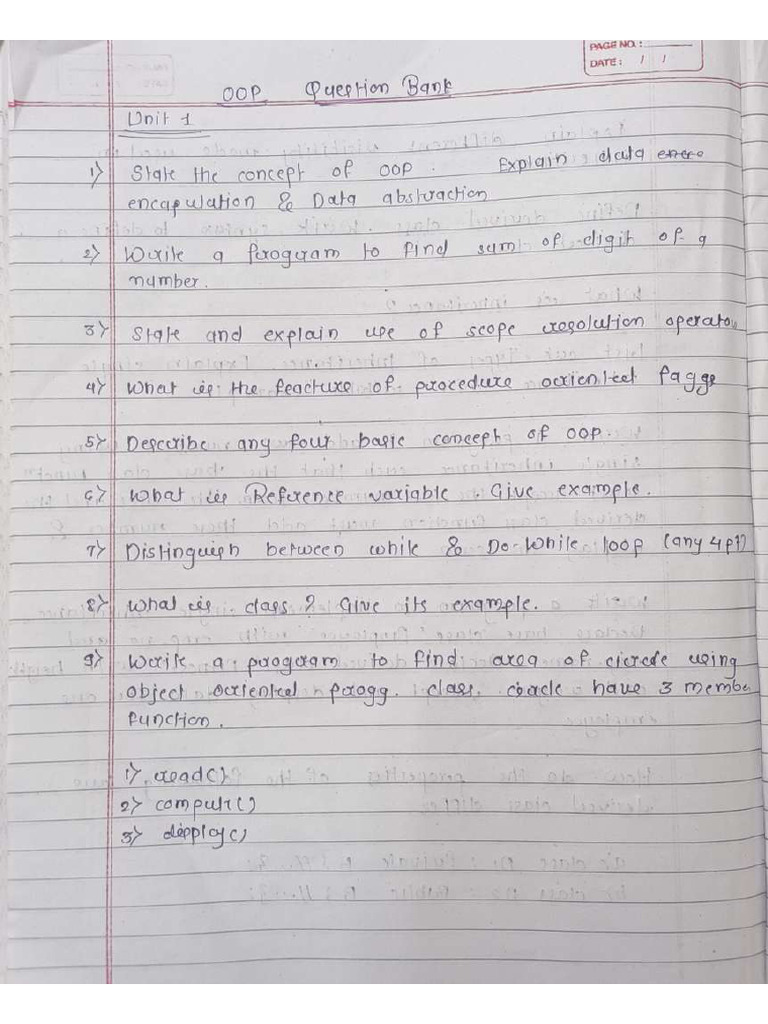 PAGE NO.:
DATE: / /
OOP Question Bank
Unit 1
1) State the concept of OOP. Explain data
encapulation & Data abstraction
2) Write a program to find sum of digit of a
number.
3) State and explain use of scope resolution operator
4) What is the feacture of procedure oriented
5) Describe any four basic concept of OOP.
6) What is Reference variable Give example.
7) Distinguish between while & Do-While loop (any 4pt)
8) What is class? Give its example.
9) Write a program to find area of circle using
object oriented progg. class, circle have 3 membe
function.
1) read()
2) compute()
3) display()